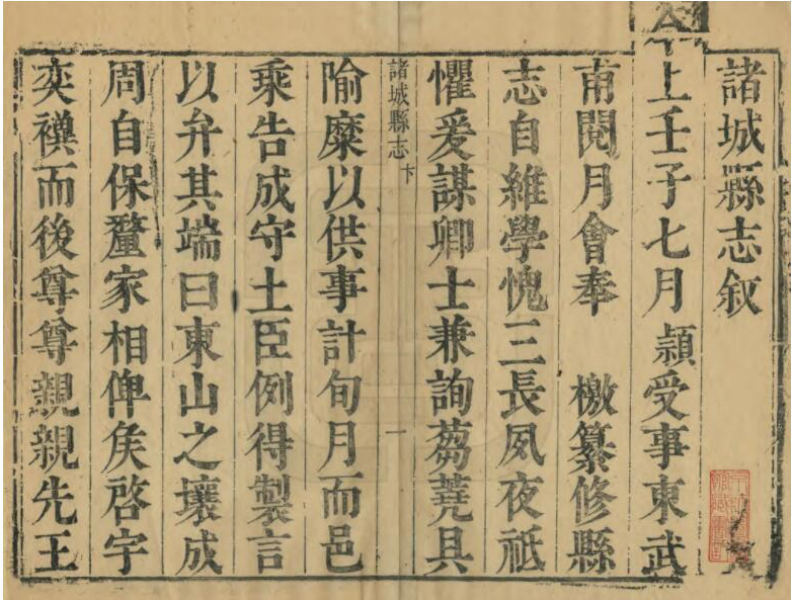 諸城縣志叙
上壬子七月穎受事東武
甫閱月會奉 檄纂修縣
志自維學愧三長夙夜祇
懼爰謀卿士兼詢芻蕘具
諸城縣志 卞 一
隃糜以供事計旬月而邑
乘告成守土臣例得製言
以弁其端曰東山之壤成
周自保釐家相俾矦啓宇
奕禩而後尊尊親親先王